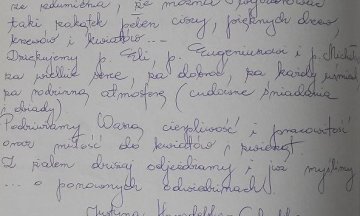 ze zdumienia, że można
taki zakątek pełen ciszy, pięknych drzew,
krzewów i kwiatów...
Dziękujemy p. Eli, p. Eugeniuszowi i p.
za wielkie serce, za dobro, za każdy uśmiech
za rodzinną atmosferę (cudowne śniadania
i obiady)
Podziwiamy Waszą cierpliwość i pracowitość
oraz miłość do kwiatów i zwierząt.
Z żalem dzisiaj odjeżdżamy i już myślimy
... o ponownych odwiedzinach
Justyna